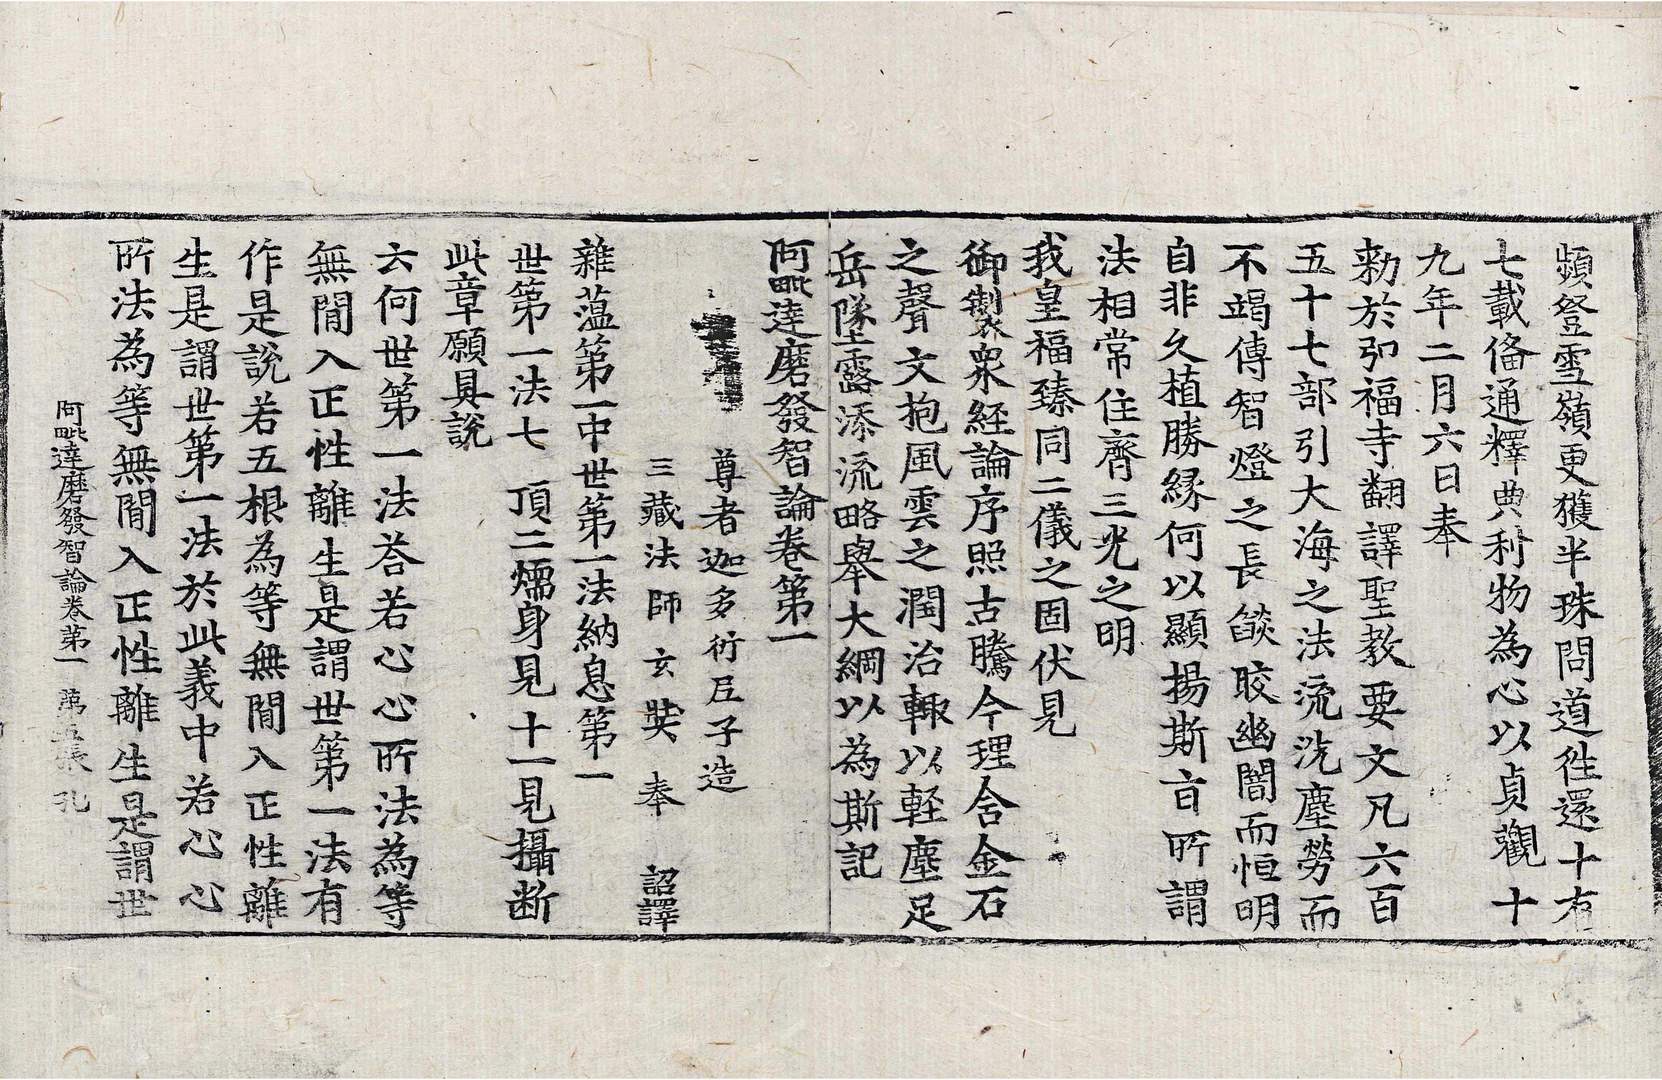 頻登雪嶺更獲半珠問道往還十有
七載俻通釋典利物為心以貞觀十
九年二月六日奉
勑於弘福寺翻譯聖教要文凡六百
五十七部引大海之法流洗塵勞而
不竭傳智燈之長燄皎幽闇而恒明
自非久植勝緣何以顯揚斯旨所謂
法相常住齊三光之明
我皇福臻同二儀之固伏見
御製衆經論序照古騰今理含金石
之聲文抱風雲之潤治輙以輕塵足
岳墜露添流略舉大綱以為斯記
阿毗達磨發智論卷第一
尊者迦多衍尼子造
三藏法師玄奘奉 詔譯
雜蘊第一中世第一法納息第一
世第一法七 頂二煗身見十一見攝斷
此章願具說
云何世第一法荅若心心所法為等
無閒入正性離生是謂世第一法有
作是說若五根為等無閒入正性離
生是謂世第一法於此義中若心心
所法為等無閒入正性離生是謂世
阿毗達磨發智論卷第一 第五張 孔